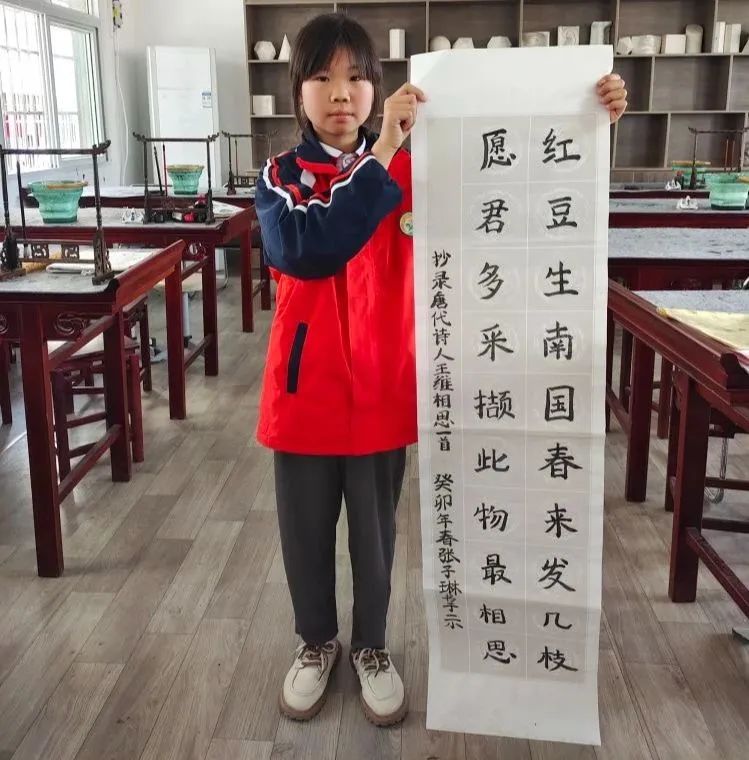 红豆生南国春来发几枝
愿君多采撷此物最相思
抄录唐代诗人王维相思一首 癸卯年春张子琳书示